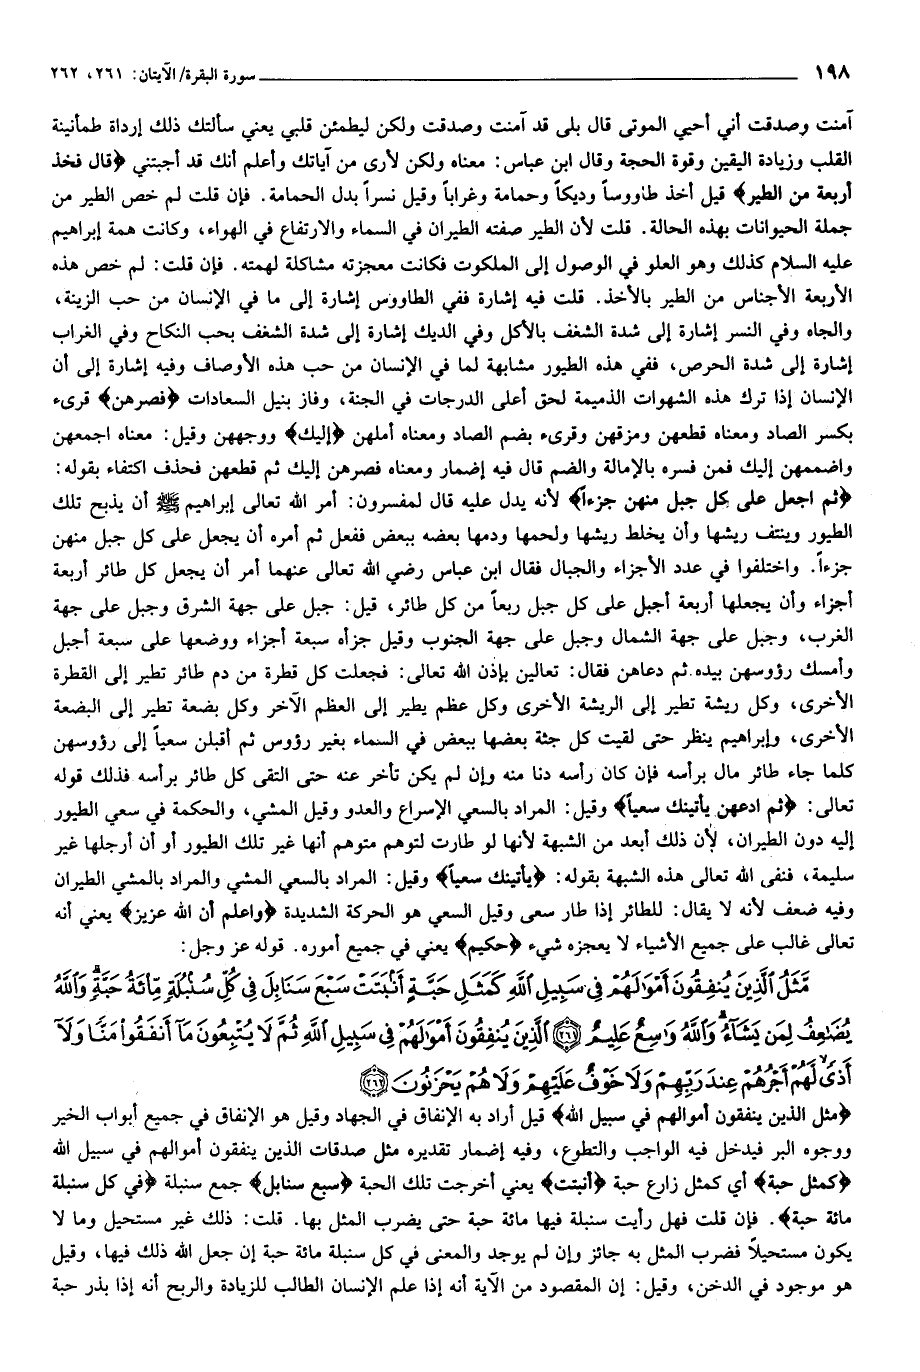 ١٩٨ سورة البقرة/ الآيتان: ٢٦١، ٢٦٢
آمنت وصدقت أني أحيي الموتى قال بلى قد آمنت وصدقت ولكن ليطمئن قلبي يعني سألتك ذلك إرداة طمأنينة
القلب وزيادة اليقين وقوة الحجة وقال ابن عباس: معناه ولكن لأرى من آياتك وأعلم أنك قد أجبتني ﴿قال فخذ
أربعة من الطير﴾ قيل أخذ طاووساً وديكاً وحمامة وغراباً وقيل نسراً بدل الحمامة. فإن قلت لم خص الطير من
جملة الحيوانات بهذه الحالة. قلت لأن الطير صفته الطيران في السماء والارتفاع في الهواء، وكانت همة إبراهيم
عليه السلام كذلك وهو العلو في الوصول إلى الملكوت فكانت معجزته مشاكلة لهمته. فإن قلت: لم خص هذه
الأربعة الأجناس من الطير بالأخذ. قلت فيه إشارة ففي الطاووس إشارة إلى ما في الإنسان من حب الزينة،
والجاه وفي النسر إشارة إلى شدة الشغف بالأكل وفي الديك إشارة إلى شدة الشغف بحب النكاح وفي الغراب
إشارة إلى شدة الحرص، ففي هذه الطيور مشابهة لما في الإنسان من حب هذه الأوصاف وفيه إشارة إلى أن
الإنسان إذا ترك هذه الشهوات الذميمة لحق أعلى الدرجات في الجنة، وفاز بنيل السعادات ﴿فصرهن﴾ قرىء
بكسر الصاد ومعناه قطعهن ومزقهن وقرىء بضم الصاد ومعناه أملهن ﴿إليك﴾ ووجههن وقيل: معناه اجمعهن
واضممهن إليك فمن فسره بالإمالة والضم قال فيه إضمار ومعناه فصرهن إليك ثم قطعهن فحذف اكتفاء بقوله:
﴿ثم اجعل على كل جبل منهن جزءاً﴾ لأنه يدل عليه قال لمفسرون: أمر الله تعالى إبراهيم ﷺ أن يذبح تلك
الطيور وينتف ريشها وأن يخلط ريشها ولحمها ودمها بعضه ببعض ففعل ثم أمره أن يجعل على كل جبل منهن
جزءاً. واختلفوا في عدد الأجزاء والجبال فقال ابن عباس رضي الله تعالى عنهما أمر أن يجعل كل طائر أربعة
أجزاء وأن يجعلها أربعة أجبل على كل جبل ربعاً من كل طائر، قيل: جبل على جهة الشرق وجبل على جهة
الغرب، وجبل على جهة الشمال وجبل على جهة الجنوب وقيل جزأه سبعة أجزاء ووضعها على سبعة أجبل
وأمسك رؤوسهن بيده ثم دعاهن فقال: تعالين بإذن الله تعالى: فجعلت كل قطرة من دم طائر تطير إلى القطرة
الأخرى، وكل ريشة تطير إلى الريشة الأخرى وكل عظم يطير إلى العظم الآخر وكل بضعة تطير إلى البضعة
الأخرى، وإبراهيم ينظر حتى لقيت كل جثة بعضها ببعض في السماء بغير رؤوس ثم أقبلن سعياً إلى رؤوسهن
كلما جاء طائر مال برأسه فإن كان رأسه دنا منه وإن لم يكن تأخر عنه حتى التقى كل طائر برأسه فذلك قوله
تعالى: ﴿ثم ادعهن يأتينك سعياً﴾ وقيل: المراد بالسعي الإسراع والعدو وقيل المشي، والحكمة في سعي الطيور
إليه دون الطيران، لأن ذلك أبعد من الشبهة لأنها لو طارت لتوهم متوهم أنها غير تلك الطيور أو أن أرجلها غير
سليمة، فنفى الله تعالى هذه الشبهة بقوله: ﴿يأتينك سعياً﴾ وقيل: المراد بالسعي المشي والمراد بالمشي الطيران
وفيه ضعف لأنه لا يقال: للطائر إذا طار سعى وقيل السعي هو الحركة الشديدة ﴿واعلم أن الله عزيز﴾ يعني أنه
تعالى غالب على جميع الأشياء لا يعجزه شيء ﴿حكيم﴾ يعني في جميع أموره. قوله عز وجل:
مَّثَلُ ٱلَّذِينَ يُنفِقُونَ أَمْوَٰلَهُمْ فِى سَبِيلِ ٱللَّهِ كَمَثَلِ حَبَّةٍ أَنۢبَتَتْ سَبْعَ سَنَابِلَ فِى كُلِّ سُنۢبُلَةٍ مِّا۟ئَةُ حَبَّةٍ ۗ وَٱللَّهُ
يُضَٰعِفُ لِمَن يَشَآءُ ۗ وَٱللَّهُ وَٰسِعٌ عَلِيمٌ ﴿٢٦١﴾ ٱلَّذِينَ يُنفِقُونَ أَمْوَٰلَهُمْ فِى سَبِيلِ ٱللَّهِ ثُمَّ لَا يُتْبِعُونَ مَآ أَنفَقُوا۟ مَنًّا وَلَآ
أَذًى ۙ لَّهُمْ أَجْرُهُمْ عِندَ رَبِّهِمْ وَلَا خَوْفٌ عَلَيْهِمْ وَلَا هُمْ يَحْزَنُونَ ﴿٢٦٢﴾
﴿مثل الذين ينفقون أموالهم في سبيل الله﴾ قيل أراد به الإنفاق في الجهاد وقيل هو الإنفاق في جميع أبواب الخير
ووجوه البر فيدخل فيه الواجب والتطوع، وفيه إضمار تقديره مثل صدقات الذين ينفقون أموالهم في سبيل الله
﴿كمثل حبة﴾ أي كمثل زارع حبة ﴿أنبتت﴾ يعني أخرجت تلك الحبة ﴿سبع سنابل﴾ جمع سنبلة ﴿في كل سنبلة
مائة حبة﴾. فإن قلت فهل رأيت سنبلة فيها مائة حبة حتى يضرب المثل بها. قلت: ذلك غير مستحيل وما لا
يكون مستحيلاً فضرب المثل به جائز وإن لم يوجد والمعنى في كل سنبلة مائة حبة إن جعل الله ذلك فيها، وقيل
هو موجود في الدخن، وقيل: إن المقصود من الآية أنه إذا علم الإنسان الطالب للزيادة والربح أنه إذا بذر حبة